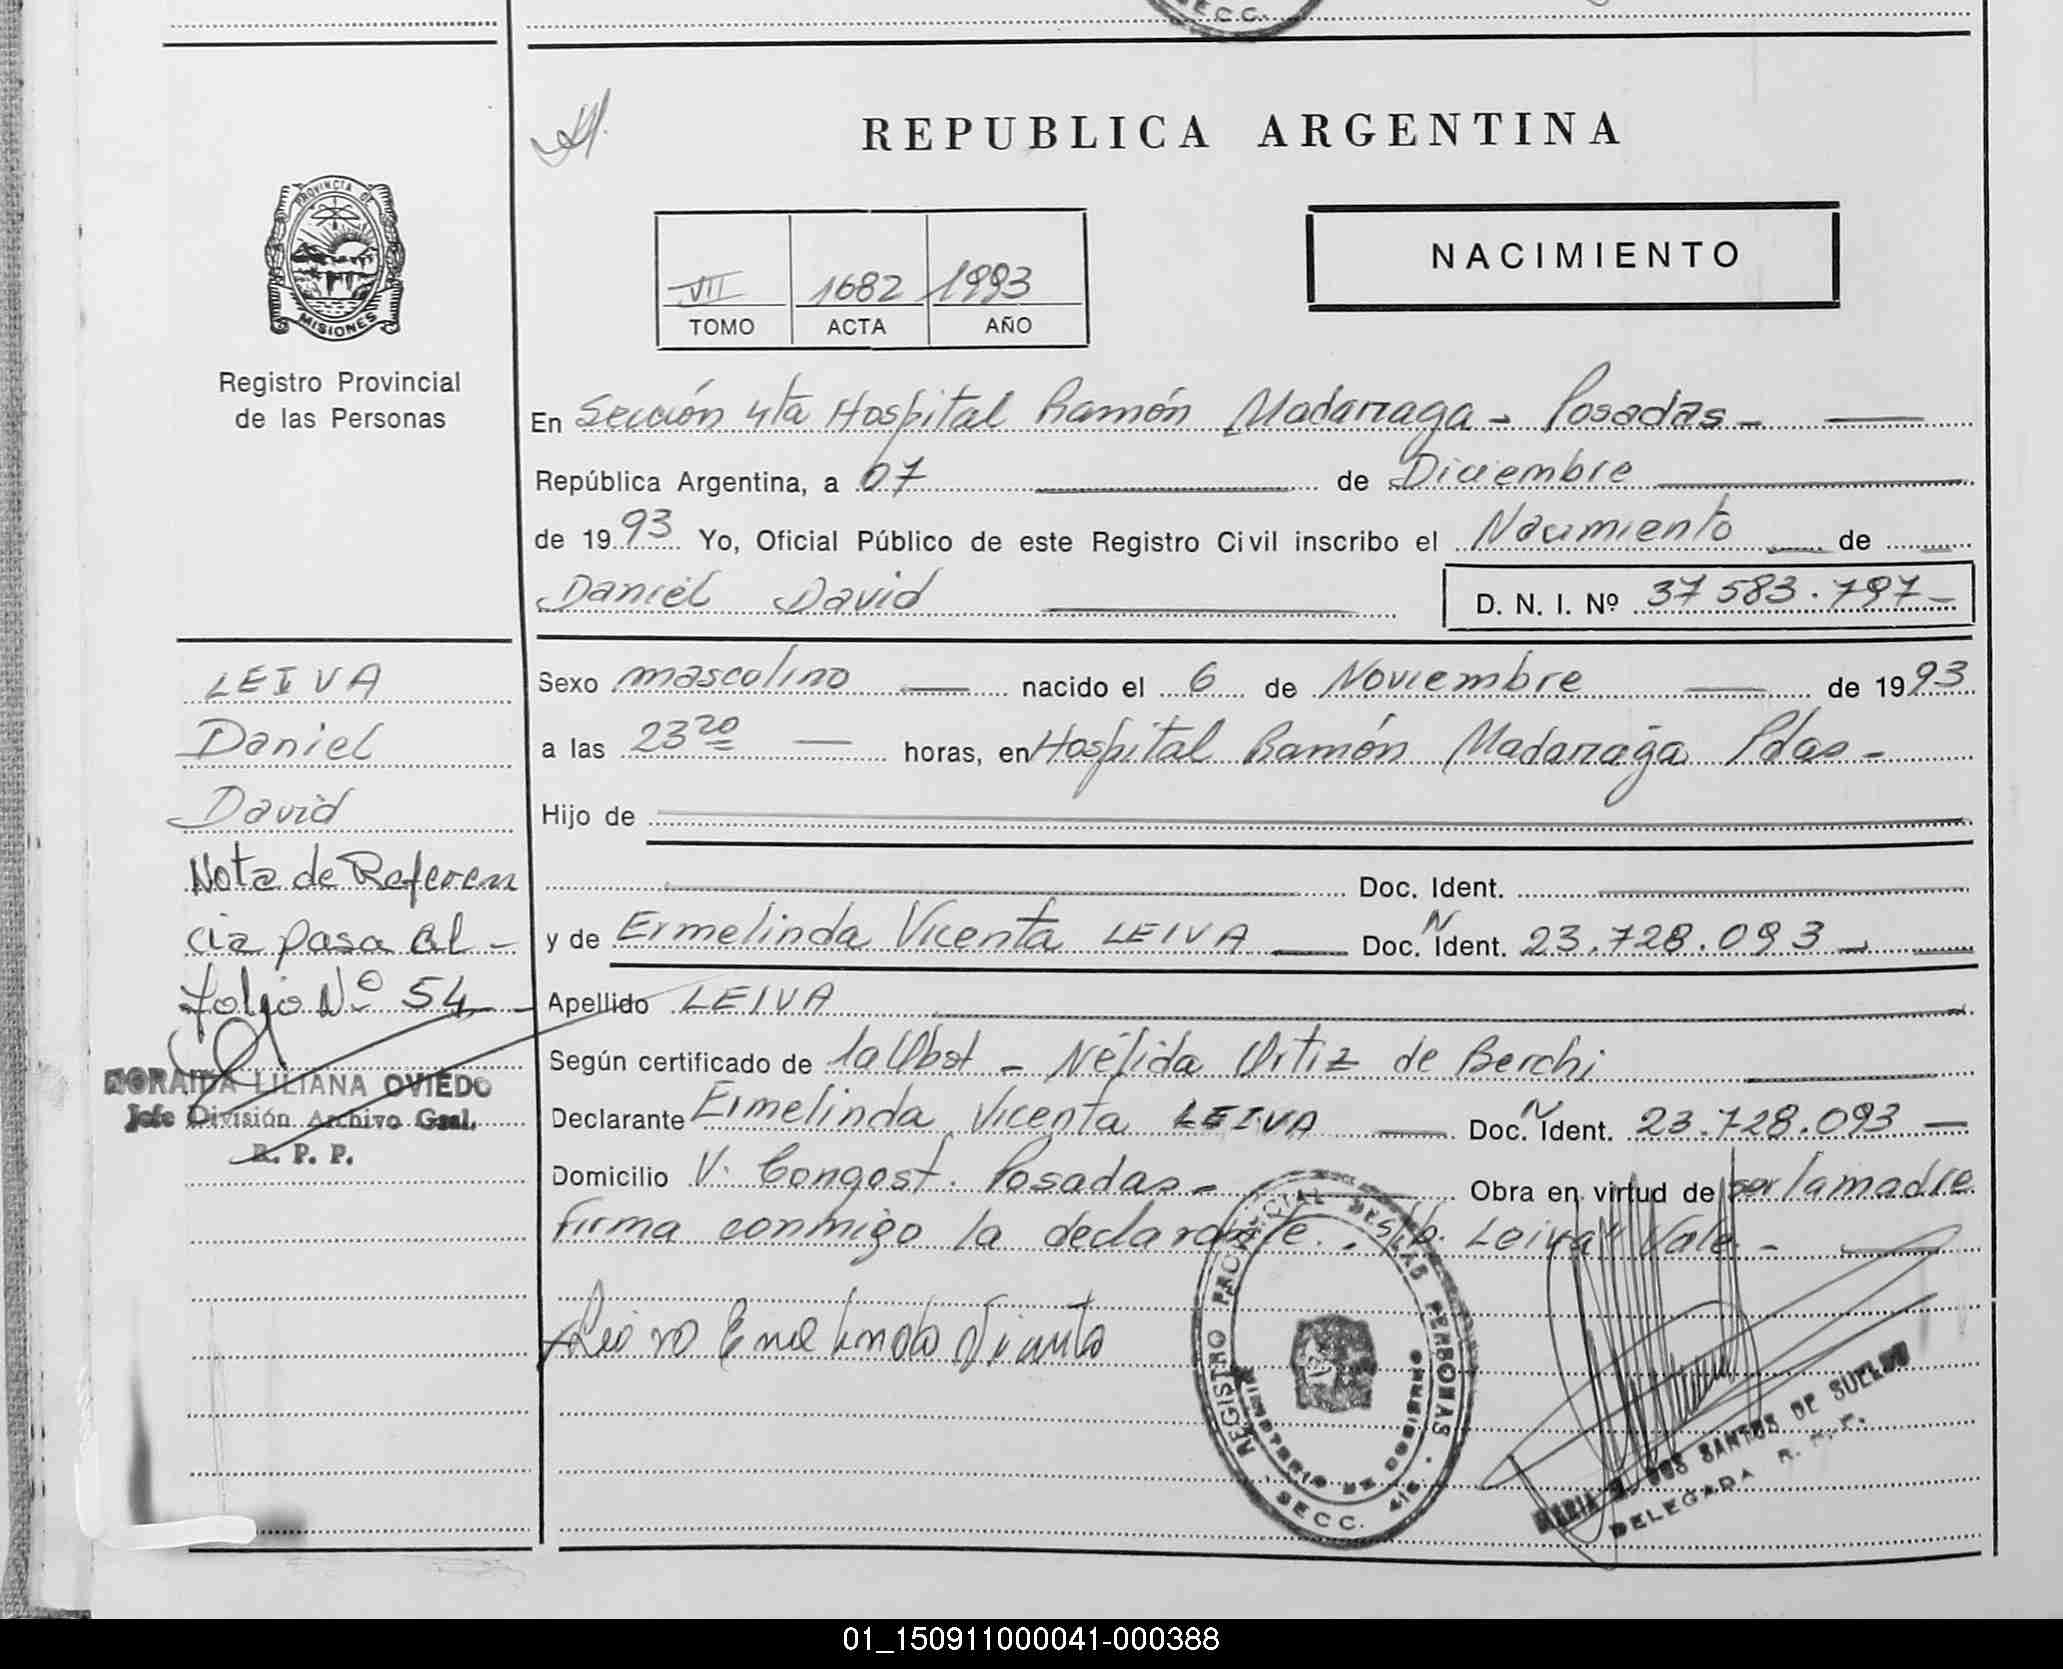 SECC.
REPUBLICA ARGENTINA
PROVINCIA DE
MISIONES
NACIMIENTO
VII 1682 1993
TOMO ACTA AÑO
Registro Provincial
de las Personas
En Sección 4ta Hospital Ramón Madarraga - Posadas -
República Argentina, a 07 de Diciembre
de 1993 Yo, Oficial Público de este Registro Civil inscribo el Nacimiento de
Daniel David
D. N. I. Nº 37583.797-
LEIVA
Daniel
David
Nota de Referen
cia pasa al -
folio Nº 54
ZORAIDA LILIANA OVIEDO
Jefe División Archivo Gral.
R. P. P.
Sexo masculino nacido el 6 de Noviembre de 1993
a las 23 20 horas, en Hospital Ramón Madarraga Pdas -
Hijo de
Doc. Ident.
y de Ermelinda Vicenta LEIVA Doc. N Ident. 23.728.093 -
Apellido LEIVA
Según certificado de la Obst - Nélida Ortiz de Berchi
Declarante Ermelinda Vicenta LEIVA Doc. N Ident. 23.728.093 -
Domicilio V. Congost. Posadas - Obra en virtud de ser la madre
firma conmigo la declarante. s/b. Leiva" Vale -
Ermelinda
REGISTRO PROVINCIAL DE LAS PERSONAS
MINISTERIO DE GOBIERNO
SECC. 4ta
MARIA DOS SANTOS DE SUELDO
DELEGADA R. P. P.
01_150911000041-000388